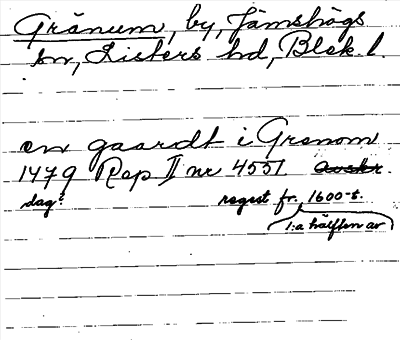 Gränum, by, Jämshögs
sn, Listers hd, Blek. l.
en gaardt i Grenom
1479 Rep II nr 4551 Avskr.
dag? regest fr. 1600-t.
1:a hälften av